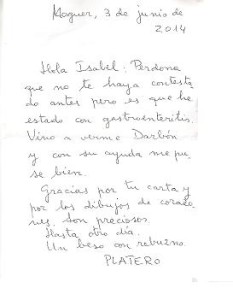 Moguer, 3 de junio de
2014
Hola Isabel: Perdona
que no te haya contesta-
do antes pero es que he
estado con gastroenteritis.
Vino a verme Darbón
y con su ayuda me pu-
se bien.
Gracias por tu carta y
por los dibujos de corazo-
nes. Son preciosos.
Hasta otro día.
Un beso con rebuzno.
PLATERO